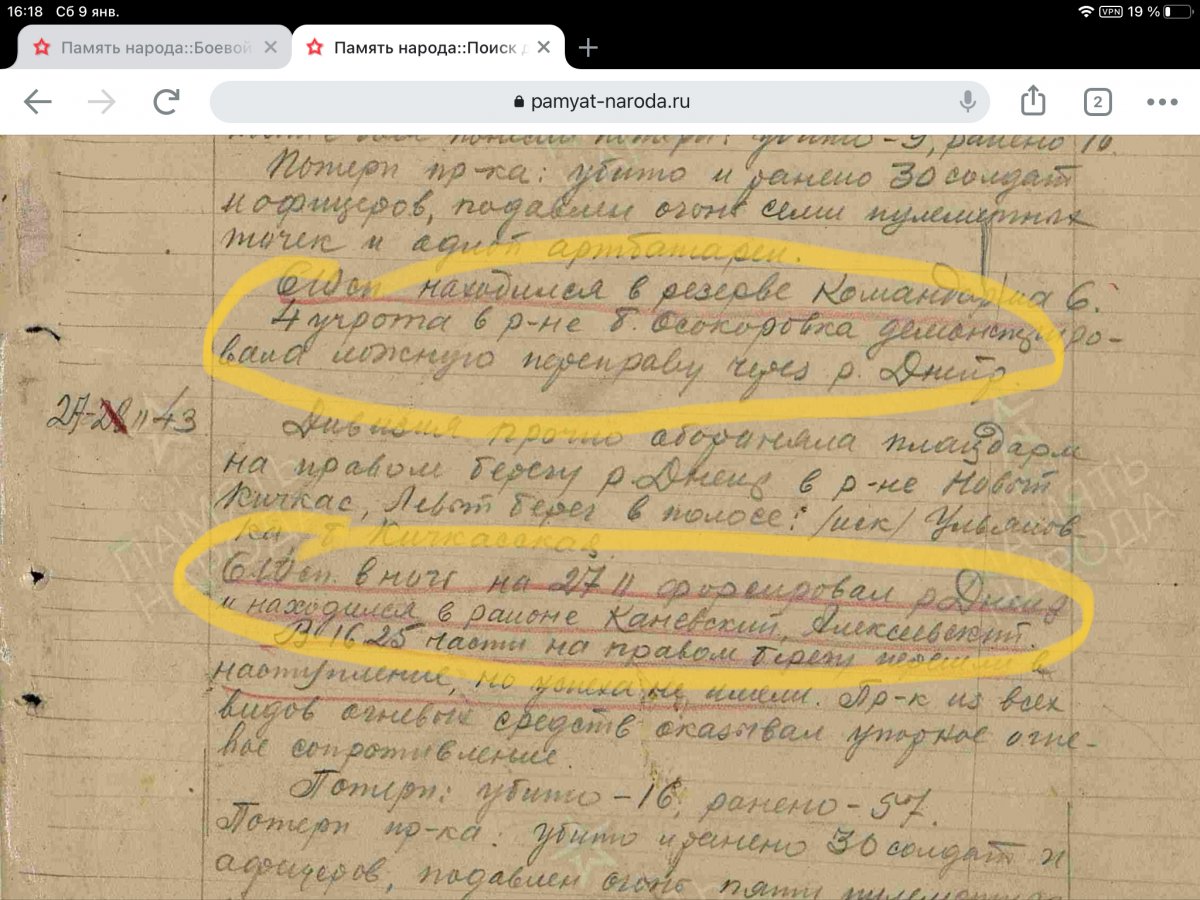 16:18 Сб 9 янв. VPN 19 %
Память народа::Боевой
Память народа::Поиск д
pamyat-naroda.ru
2
убито – 9, ранено 16.
Потери пр-ка: убито и ранено 30 солдат
и офицеров, подавлен огонь семи пулеметных
точек и одной артбатареи.
610сп находился в резерве Командарма 6.
4 учрота в р-не б. Осокоровка демонстриро-
вала ложную переправу через р. Днепр.
27-28 11 43
Дивизия прочно обороняла плацдарм
на правом берегу р. Днепр в р-не Новый
Кичкас, Левый берег в полосе: /иск/ Ульянов-
ка, б. Кичкасская.
610сп. в ночь на 27 11 форсировал р. Днепр
и находился в районе Каневский, Алексеевский.
В 16 25 части на правом берегу перешли в
наступление, но успеха не имели. Пр-к из всех
видов огневых средств оказывал упорное огне-
вое сопротивление.
Потери: убито – 16, ранено – 57.
Потери пр-ка: убито и ранено 30 солдат и
офицеров, подавлен огонь пяти
ПАМЯТЬ
НАРОДА
ПАМЯТЬ
НАРОДА